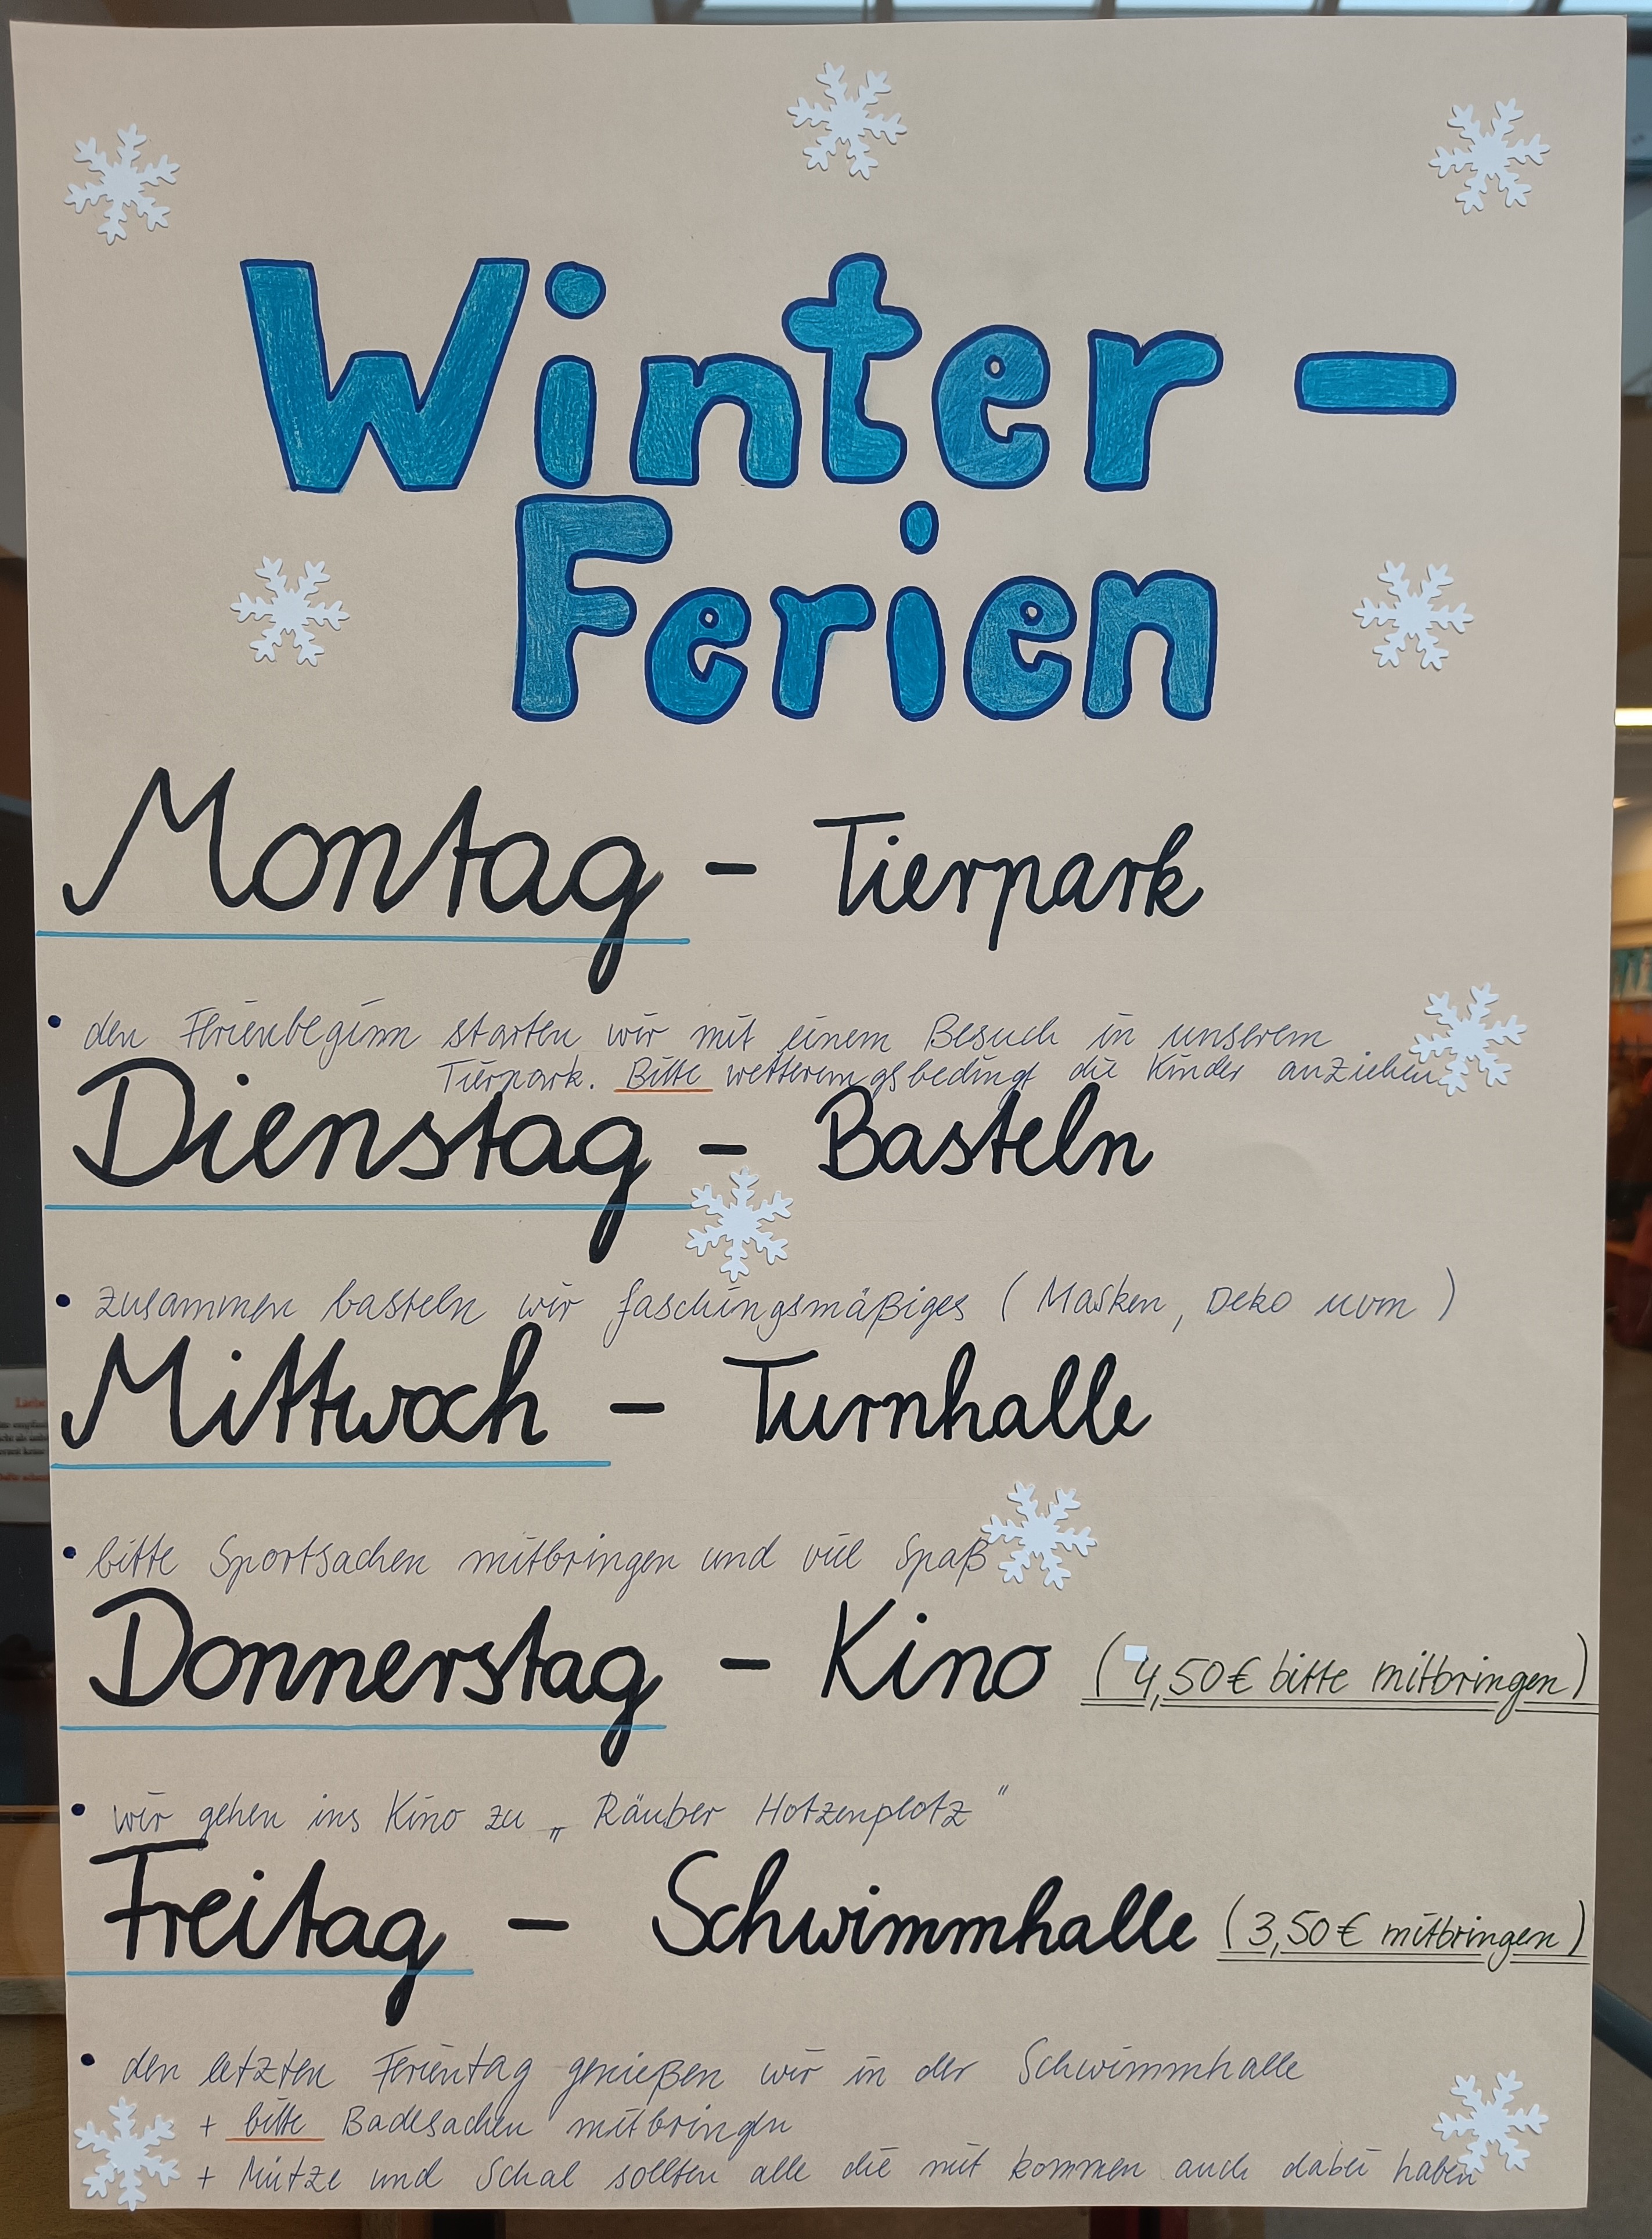 Winter-
Ferien
Montag - Tierpark
• den Ferienbeginn starten wir mit einem Besuch in unserem
Tierpark. Bitte wetterungsbedingt die Kinder anziehen
Dienstag - Basteln
• zusammen basteln wir faschingsmäßiges (Masken, Deko uvm)
Mittwoch - Turnhalle
• bitte Sportsachen mitbringen und viel Spaß
Donnerstag - Kino (4,50€ bitte mitbringen)
• wir gehen ins Kino zu „Räuber Hotzenplotz"
Freitag - Schwimmhalle (3,50€ mitbringen)
• den letzten Ferientag genießen wir in der Schwimmhalle
+ bitte Badesachen mitbringen
+ Mütze und Schal sollten alle die mit kommen auch dabei haben